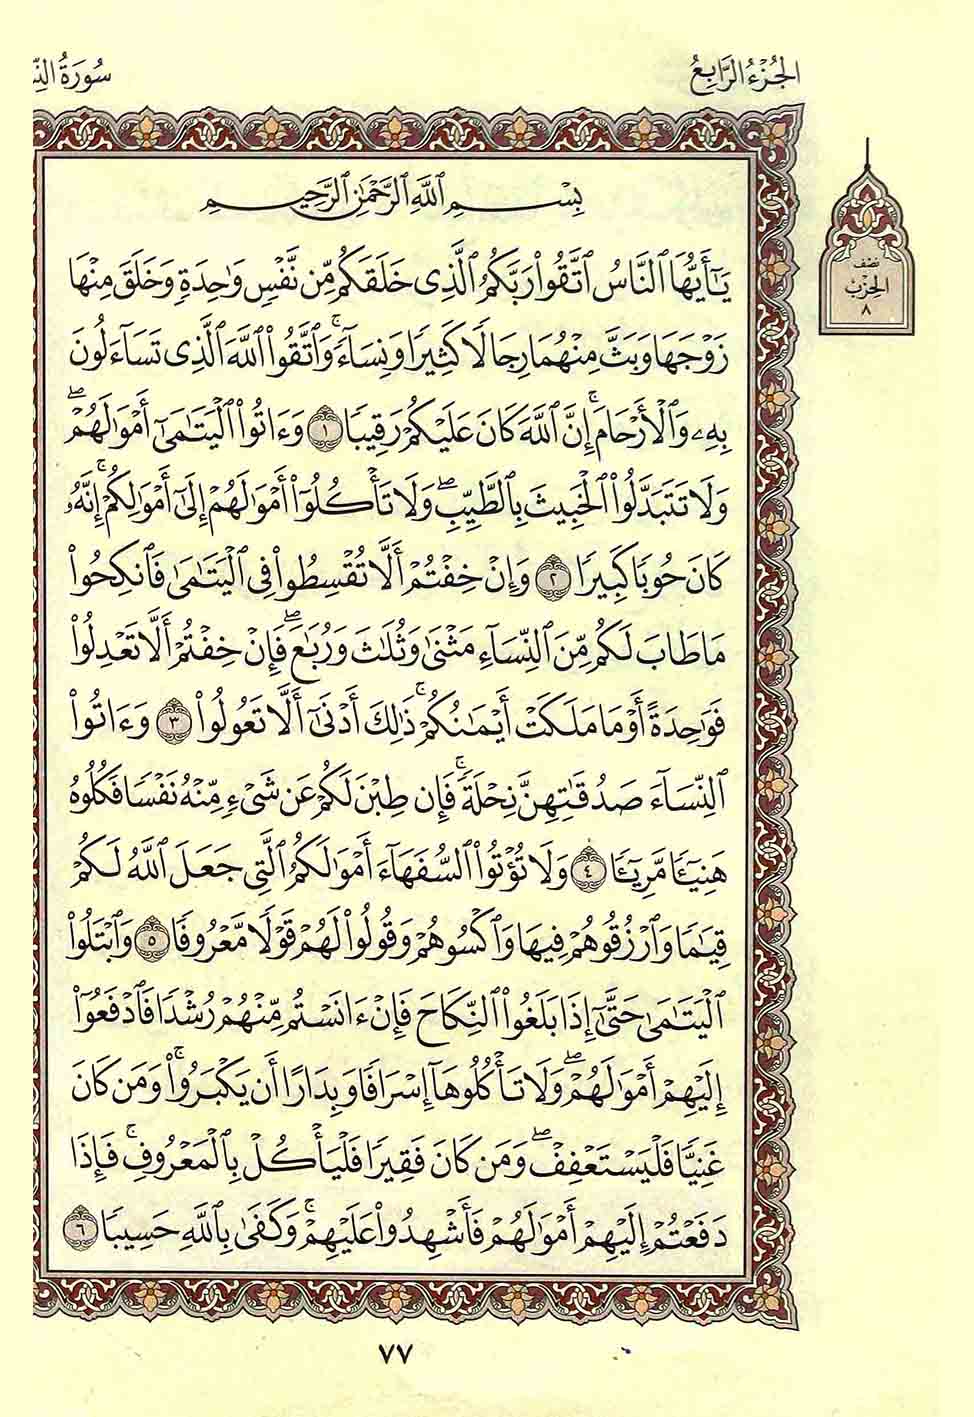 الجُزْءُ الرَّابِعُ
سُورَةُ النِّ
نصف
الحِزْب
٨
بِسْمِ ٱللَّهِ ٱلرَّحْمَٰنِ ٱلرَّحِيمِ
يَـٰٓأَيُّهَا ٱلنَّاسُ ٱتَّقُوا۟ رَبَّكُمُ ٱلَّذِى خَلَقَكُم مِّن نَّفْسٍ وَٰحِدَةٍ وَخَلَقَ مِنْهَا
زَوْجَهَا وَبَثَّ مِنْهُمَا رِجَالًا كَثِيرًا وَنِسَآءً ۚ وَٱتَّقُوا۟ ٱللَّهَ ٱلَّذِى تَسَآءَلُونَ
بِهِۦ وَٱلْأَرْحَامَ ۚ إِنَّ ٱللَّهَ كَانَ عَلَيْكُمْ رَقِيبًا ١ وَءَاتُوا۟ ٱلْيَتَـٰمَىٰٓ أَمْوَٰلَهُمْ ۖ
وَلَا تَتَبَدَّلُوا۟ ٱلْخَبِيثَ بِٱلطَّيِّبِ ۖ وَلَا تَأْكُلُوٓا۟ أَمْوَٰلَهُمْ إِلَىٰٓ أَمْوَٰلِكُمْ ۚ إِنَّهُۥ
كَانَ حُوبًا كَبِيرًا ٢ وَإِنْ خِفْتُمْ أَلَّا تُقْسِطُوا۟ فِى ٱلْيَتَـٰمَىٰ فَٱنكِحُوا۟
مَا طَابَ لَكُم مِّنَ ٱلنِّسَآءِ مَثْنَىٰ وَثُلَـٰثَ وَرُبَـٰعَ ۖ فَإِنْ خِفْتُمْ أَلَّا تَعْدِلُوا۟
فَوَٰحِدَةً أَوْ مَا مَلَكَتْ أَيْمَـٰنُكُمْ ۚ ذَٰلِكَ أَدْنَىٰٓ أَلَّا تَعُولُوا۟ ٣ وَءَاتُوا۟
ٱلنِّسَآءَ صَدُقَـٰتِهِنَّ نِحْلَةً ۚ فَإِن طِبْنَ لَكُمْ عَن شَىْءٍ مِّنْهُ نَفْسًا فَكُلُوهُ
هَنِيٓـًٔا مَّرِيٓـًٔا ٤ وَلَا تُؤْتُوا۟ ٱلسُّفَهَآءَ أَمْوَٰلَكُمُ ٱلَّتِى جَعَلَ ٱللَّهُ لَكُمْ
قِيَـٰمًا وَٱرْزُقُوهُمْ فِيهَا وَٱكْسُوهُمْ وَقُولُوا۟ لَهُمْ قَوْلًا مَّعْرُوفًا ٥ وَٱبْتَلُوا۟
ٱلْيَتَـٰمَىٰ حَتَّىٰٓ إِذَا بَلَغُوا۟ ٱلنِّكَاحَ فَإِنْ ءَانَسْتُم مِّنْهُمْ رُشْدًا فَٱدْفَعُوٓا۟
إِلَيْهِمْ أَمْوَٰلَهُمْ ۖ وَلَا تَأْكُلُوهَآ إِسْرَافًا وَبِدَارًا أَن يَكْبَرُوا۟ ۚ وَمَن كَانَ
غَنِيًّا فَلْيَسْتَعْفِفْ ۖ وَمَن كَانَ فَقِيرًا فَلْيَأْكُلْ بِٱلْمَعْرُوفِ ۚ فَإِذَا
دَفَعْتُمْ إِلَيْهِمْ أَمْوَٰلَهُمْ فَأَشْهِدُوا۟ عَلَيْهِمْ ۚ وَكَفَىٰ بِٱللَّهِ حَسِيبًا ٦
٧٧